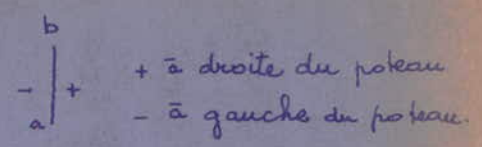 b
- +
a
+ à droite du poteau
- à gauche du poteau.